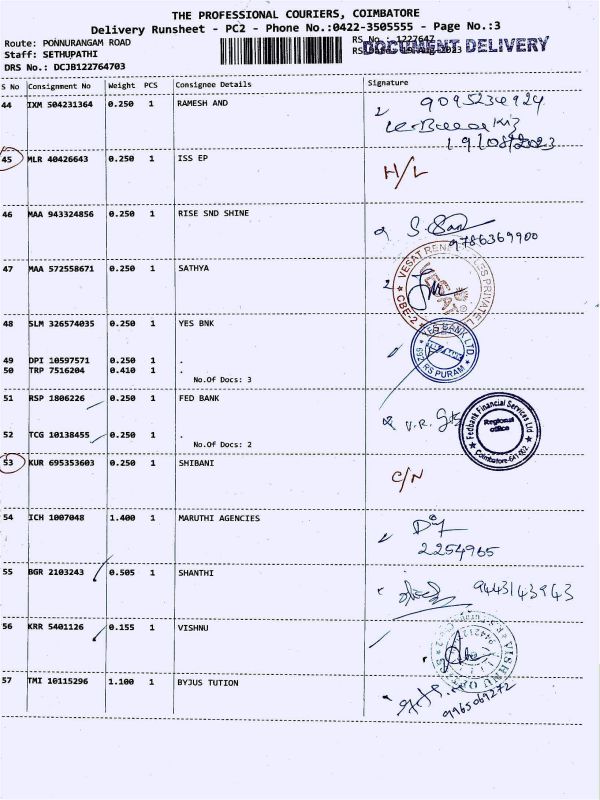 THE PROFESSIONAL COURIERS, COIMBATORE
Delivery Runsheet - PC2 - Phone No.:0422-3505555 - Page No.:3
Route: PONNURANGAM ROAD
RS No.: 1227647
DOCUMENT DELIVERY
Staff: SETHUPATHI
RS Date: 19-Aug-2023
DRS No.: DCJB122764703
S No Consignment No Weight PCS Consignee Details Signature
44 IXM 504231364 0.250 1 RAMESH AND
9095234924
19/08/2023
45 MLR 40426643 0.250 1 ISS EP
H/L
46 MAA 943324856 0.250 1 RISE SND SHINE
9786369900
47 MAA 572558671 0.250 1 SATHYA
CBE-2
48 SLM 326574035 0.250 1 YES BNK
YES BANK LTD.
RS PURAM
49 DPI 10597571 0.250 1
50 TRP 7516204 0.410 1 .
No.Of Docs: 3
51 RSP 1806226 0.250 1 FED BANK
Fedbank Financial Services Ltd
Regional
office
Coimbatore-641 002
52 TCG 10138455 0.250 1 .
No.Of Docs: 2
53 KUR 695353603 0.250 1 SHIBANI
C/N
54 ICH 1007048 1.400 1 MARUTHI AGENCIES
2254965
55 BGR 2103243 0.505 1 SHANTHI
9443143943
56 KRR 5401126 0.155 1 VISHNU
57 TMI 10115296 1.100 1 BYJUS TUTION
9965069272